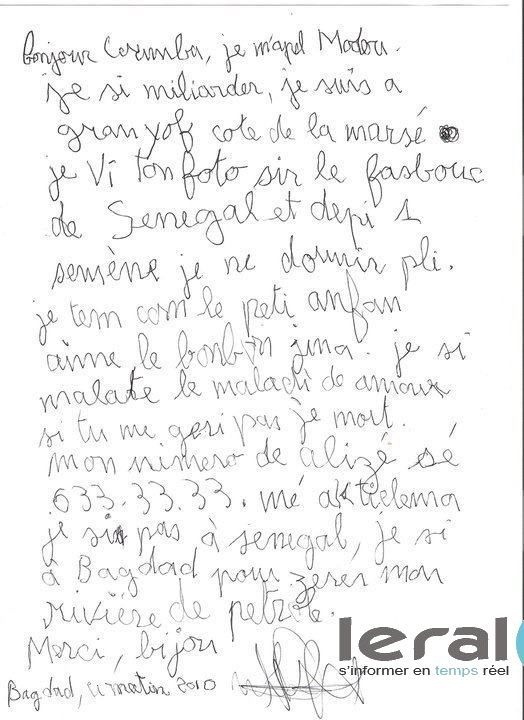 bonjour Coumba, je m'apel Modou.
je si miliarder, je suis a
gran yof cote de la marsé
je vi ton foto sir le fasbouc
de Senegal et depi 1
semène je ne dormir pli.
je tem com le peti anfan
aime le bonbon jina. je si
malate le maladi de amour
si tu me geri pas je mort.
mon nimero de alizé sé
633.33.33. mé aktielema
je si pas à senegal, je si
à Bagdad pour zerer mon
rivière de petrole.
Merci, bijou
Bagdad, matin 2010
leral
s'informer en temps réel